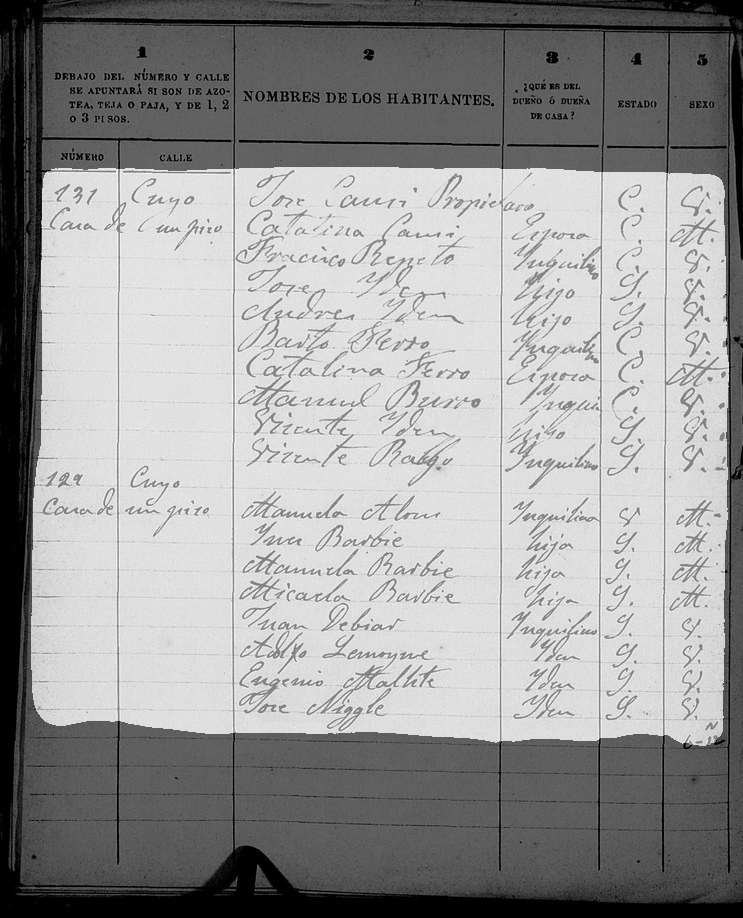 1 2 3 4 5
DEBAJO DEL NÚMERO Y CALLE
SE APUNTARÁ SI SON DE AZO-
TEA, TEJA O PAJA, Y DE 1, 2
O 3 PISOS.
NOMBRES DE LOS HABITANTES.
¿QUÉ ES DEL
DUEÑO Ó DUEÑA
DE CASA?
ESTADO
SEXO
NÚMERO CALLE
131 Cuyo Jose Propietario C. V.
Casa de un piso Catalina Esposa C. M.
Repeto Inquilino C. V.
Jose Ydem hijo S. V.
Andres Ydem hijo S. V.
Barto Ferro Inquilino C. V.
Catalina Ferro Esposa C. M.
Manuel Burro Inquil C. V.
Vicente Ydem hijo S. V.
Vicente Inquilino S. V.
129 Cuyo
Casa de un piso Manuela Inquilina V M.
Ines Barbie hija S. M.
Manuela Barbie hija S. M.
Micaela Barbie hija S. M.
Juan Debiar Inquilino S. V.
Adolfo Lemoyne Ydem S. V.
Eugenio Ydem S. V.
Jose Niggle Ydem S. V.